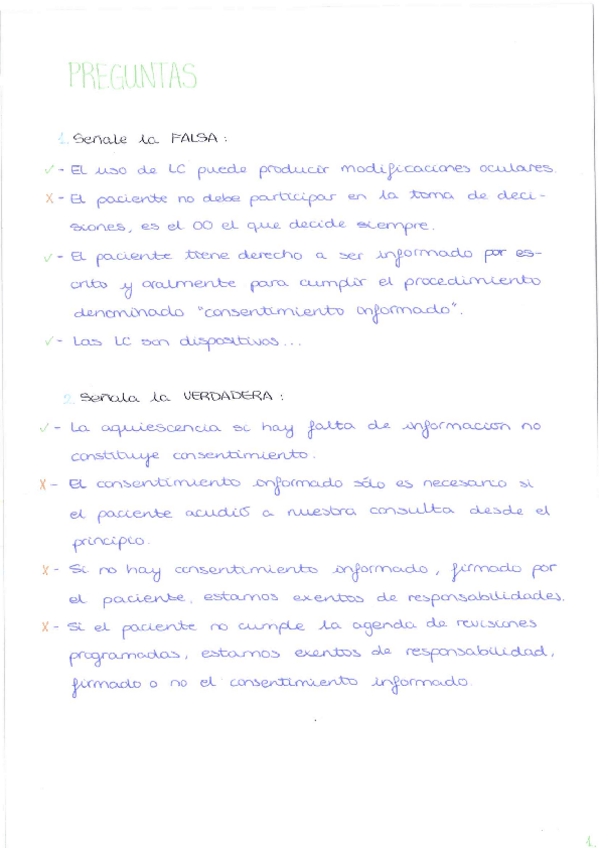 PREGUNTAS
1. Señale la FALSA:
✓ - El uso de LC puede producir modificaciones oculares.
X - El paciente no debe participar en la toma de deci-
siones, es el OO el que decide siempre.
✓ - El paciente tiene derecho a ser informado por es-
crito y oralmente para cumplir el procedimiento
denominado "consentimiento informado".
✓ - Las LC son dispositivos...
2. Señala la VERDADERA:
✓ - La aquiescencia si hay falta de información no
constituye consentimiento.
X - El consentimiento informado sólo es necesario si
el paciente acudió a nuestra consulta desde el
principio.
X - Si no hay consentimiento informado, firmado por
el paciente, estamos exentos de responsabilidades.
X - Si el paciente no cumple la agenda de revisiones
programadas, estamos exentos de responsabilidad,
firmado o no el consentimiento informado.
1.